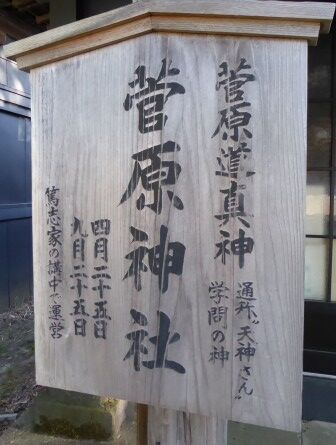 菅原道真神
通称〝天神さん〟
学問の神
菅原神社
四月二十五日
九月二十五日
篤志家の講中で運営